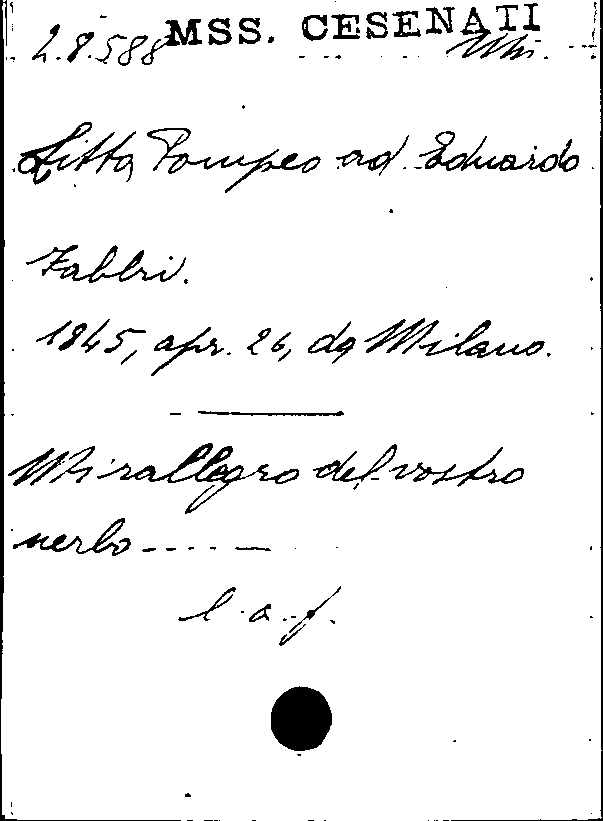 MSS. CESENATI
2.8.588
Litta Pompeo ad Eduardo
Fabbri.
1845, apr. 26, da Milano.
Mi rallegro del vostro
nerbo - - - - -
l. a. f.